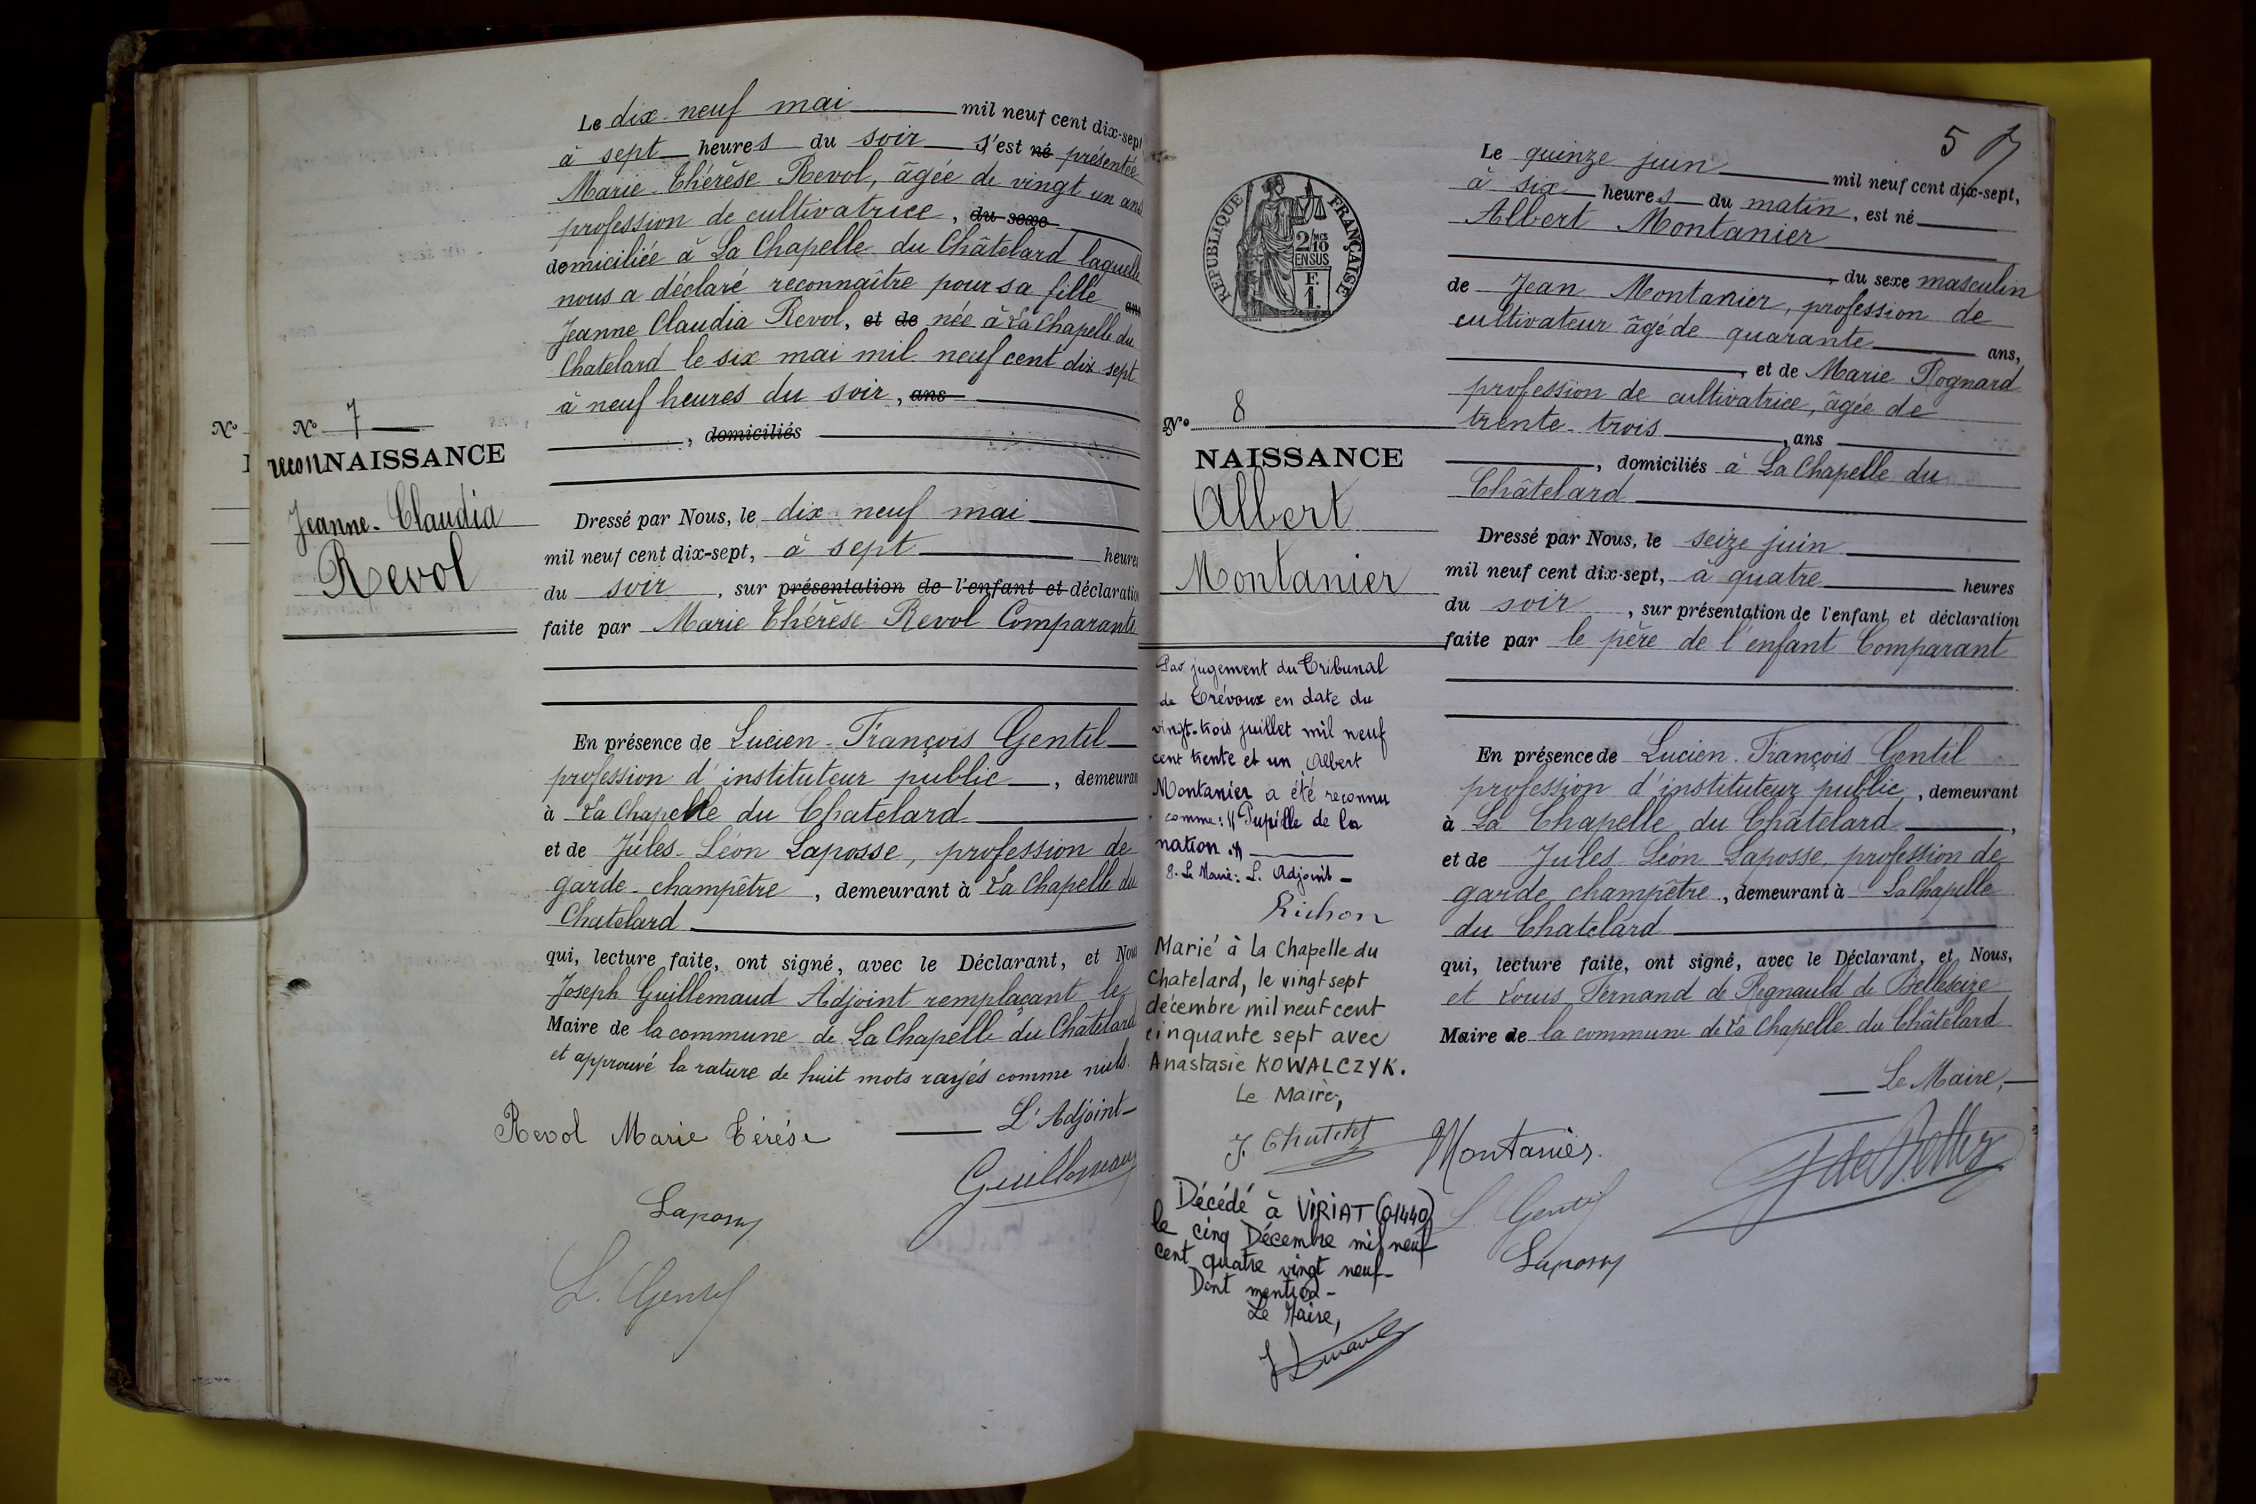 N° 7
reconNAISSANCE
Jeanne-Claudia
Revol
Le dix-neuf mai mil neuf cent dix-sept
à sept heures du soir s'est né présentée
Marie-Thérèse Revol, âgée de vingt un ans
profession de cultivatrice, du sexe
domiciliée à La Chapelle du Châtelard laquelle
nous a déclaré reconnaître pour sa fille ans
Jeanne Claudia Revol, et de née à La Chapelle du
Chatelard le six mai mil neuf cent dix sept
à neuf heures du soir, ans
, domiciliés
Dressé par Nous, le dix-neuf mai
mil neuf cent dix-sept, à sept heures
du soir, sur présentation de l'enfant et déclaration
faite par Marie Thérèse Revol Comparante
En présence de Lucien-François Gentil
profession d'instituteur public, demeurant
à La Chapelle du Chatelard
et de Jules-Léon Laposse, profession de
garde-champêtre, demeurant à La Chapelle du
Chatelard
qui, lecture faite, ont signé, avec le Déclarant, et Nous
Joseph Guillemaud Adjoint remplaçant le
Maire de la commune de La Chapelle du Châtelard
et approuvé la rature de huit mots rayés comme nuls.
L'Adjoint
Revol Marie Térése
Guillemaud
Laposse
L. Gentil
N°
5
RÉPUBLIQUE FRANÇAISE
2/10 MES
EN SUS
F.
1.
N° 8
NAISSANCE
Albert
Montanier
Par jugement du Tribunal
de Trévoux en date du
vingt-trois juillet mil neuf
cent trente et un, Albert
Montanier a été reconnu
comme: "Pupille de la
nation."
P. Le Maire: L. Adjoint
Richon
Marié à la Chapelle du
Chatelard, le vingt sept
décembre mil neuf cent
cinquante sept avec
Anastasie KOWALCZYK.
Le Maire,
Décédé à VIRIAT (01440)
le cinq Décembre mil neuf
cent quatre vingt neuf
Dont mention
Le Maire,
Le quinze juin mil neuf cent dix-sept,
à six heures du matin, est né
Albert Montanier
, du sexe masculin
de Jean Montanier, profession de
cultivateur âgé de quarante ans,
, et de Marie Rognard
profession de cultivatrice, âgée de
trente-trois, ans
, domiciliés à La Chapelle du
Châtelard
Dressé par Nous, le seize juin
mil neuf cent dix-sept, à quatre heures
du soir, sur présentation de l'enfant et déclaration
faite par le père de l'enfant Comparant
En présence de Lucien-François Gentil
profession d'instituteur public, demeurant
à La Chapelle du Châtelard,
et de Jules Léon Laposse, profession de
garde champêtre, demeurant à La Chapelle
du Chatelard
qui, lecture faite, ont signé, avec le Déclarant, et Nous,
et Louis Fernand de Regnauld de Bellescize
Maire de la commune de La Chapelle du Châtelard
Le Maire,
Montanier.
L. Gentil
Laposse